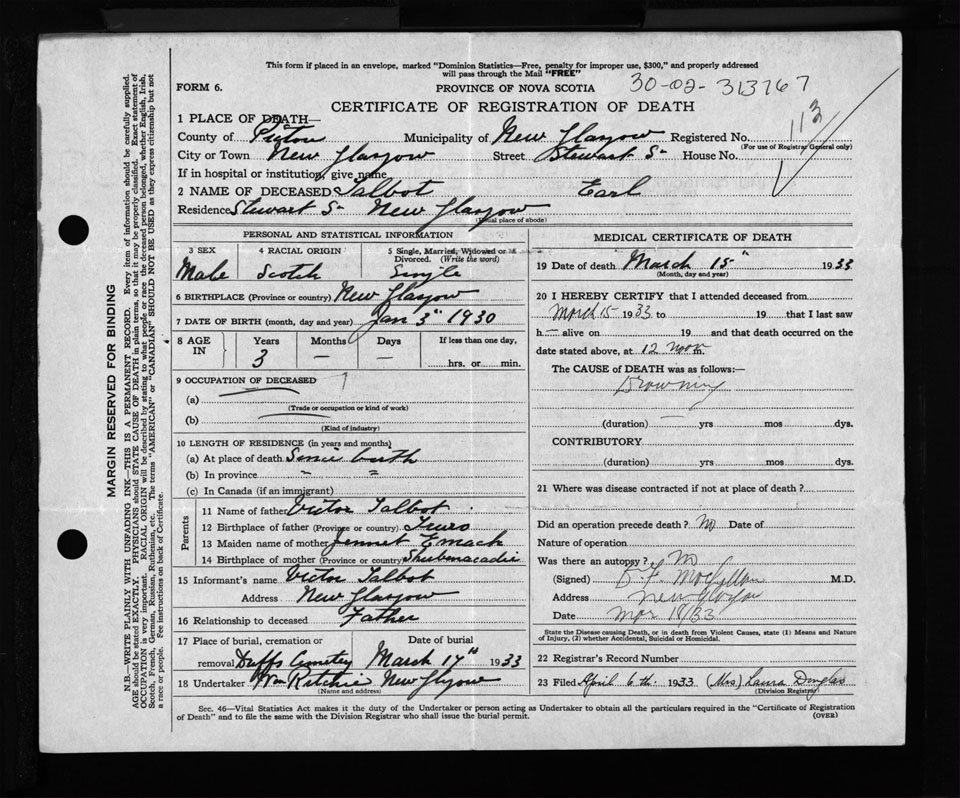 This form if placed in an envelope, marked "Dominion Statistics—Free, penalty for improper use, $300," and properly addressed
will pass through the Mail "FREE"
FORM 6. PROVINCE OF NOVA SCOTIA 30-02-313767
CERTIFICATE OF REGISTRATION OF DEATH
1 PLACE OF DEATH—
County of Pictou Municipality of New Glasgow Registered No. 113
(For use of Registrar General only)
City or Town New Glasgow Street Stewart St House No.
If in hospital or institution, give name
2 NAME OF DECEASED Talbot Earl
Residence Stewart St New Glasgow
(Usual place of abode)
PERSONAL AND STATISTICAL INFORMATION
3 SEX 4 RACIAL ORIGIN 5 Single, Married, Widowed or
Divorced. (Write the word)
Male Scotch Single
6 BIRTHPLACE (Province or country) New Glasgow
7 DATE OF BIRTH (month, day and year) Jan 3rd 1930
8 AGE IN Years Months Days If less than one day,
3 — — hrs. or min.
9 OCCUPATION OF DECEASED
(a)
(Trade or occupation or kind of work)
(b)
(Kind of industry)
10 LENGTH OF RESIDENCE (in years and months)
(a) At place of death Since birth
(b) In province " "
(c) In Canada (if an immigrant)
Parents
11 Name of father Victor Talbot
12 Birthplace of father (Province or country) Truro
13 Maiden name of mother Jennet Emack
14 Birthplace of mother (Province or country) Shubenacadie
15 Informant's name Victor Talbot
Address New Glasgow
16 Relationship to deceased Father
17 Place of burial, cremation or Date of burial
removal Duffs Cemetey March 17th 1933
18 Undertaker Wm Ritchie New Glasgow
(Name and address)
MEDICAL CERTIFICATE OF DEATH
19 Date of death March 15th 1933
(Month, day and year)
20 I HEREBY CERTIFY that I attended deceased from
March 15 1933 to 19 that I last saw
h — alive on 19 and that death occurred on the
date stated above, at 12 noon m.
The CAUSE of DEATH was as follows:—
Drowning
(duration) — yrs mos dys.
CONTRIBUTORY
(duration) yrs mos dys.
21 Where was disease contracted if not at place of death?
Did an operation precede death? No Date of
Nature of operation
Was there an autopsy? No
(Signed) M.D.
Address New Glasgow
Date Mar 18/33
State the Disease causing Death, or in death from Violent Causes, state (1) Means and Nature
of Injury, (2) whether Accidental, Suicidal or Homicidal.
22 Registrar's Record Number
23 Filed April 6th 1933 (Mrs) Laura Douglas
(Division Registrar)
Sec. 46—Vital Statistics Act makes it the duty of the Undertaker or person acting as Undertaker to obtain all the particulars required in the "Certificate of Registration
of Death" and to file the same with the Division Registrar who shall issue the burial permit. (OVER)
MARGIN RESERVED FOR BINDING
N.B.—WRITE PLAINLY WITH UNFADING INK—THIS IS A PERMANENT RECORD. Every item of information should be carefully supplied.
AGE should be stated EXACTLY. PHYSICIANS should STATE CAUSE OF DEATH in plain terms, so that it may be properly classified. Exact statement of
OCCUPATION is very important. RACIAL ORIGIN will be described by stating to what people or race the deceased person belonged, whether English, Irish,
Scotch, French, German, Russian, Ruthenian, etc. The terms "AMERICAN" or "CANADIAN" SHOULD NOT BE USED as they express citizenship but not
a race or people. Fee instructions on back of Certificate.